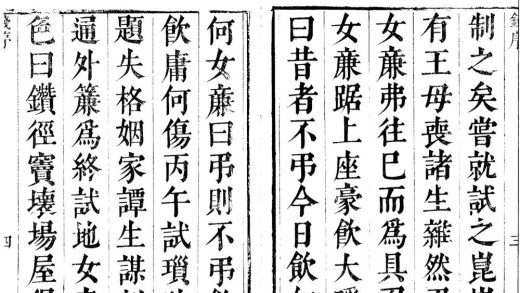 制之矣嘗就試之崑
有王母喪諸生雜然
女亷弗往已而爲具
女亷踞上座豪飲大
曰昔者不弔今日飲
三
何女亷曰弔則不弔
飲庸何傷丙午試瑣
題失格姻家譚生謀
逼外簾爲終試地女
色曰鑽徑竇壞塲屋
四